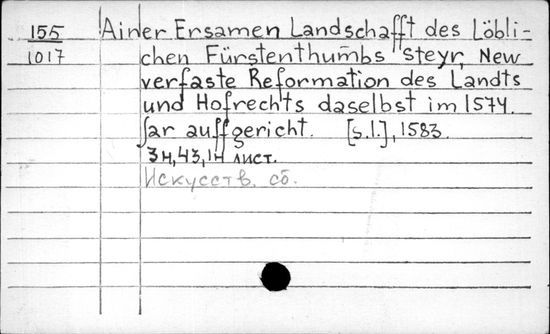 155
1017
Ainer Ersamen Landschafft des Löbli-
chen Fürstenthumbs Steyr, New
verfaste Reformation des Landts
und Hofrechts daselbst im 1574.
Jar auffgericht. [s.l.], 1583.
3н, 43, 1н лист.
Искусств. сб.